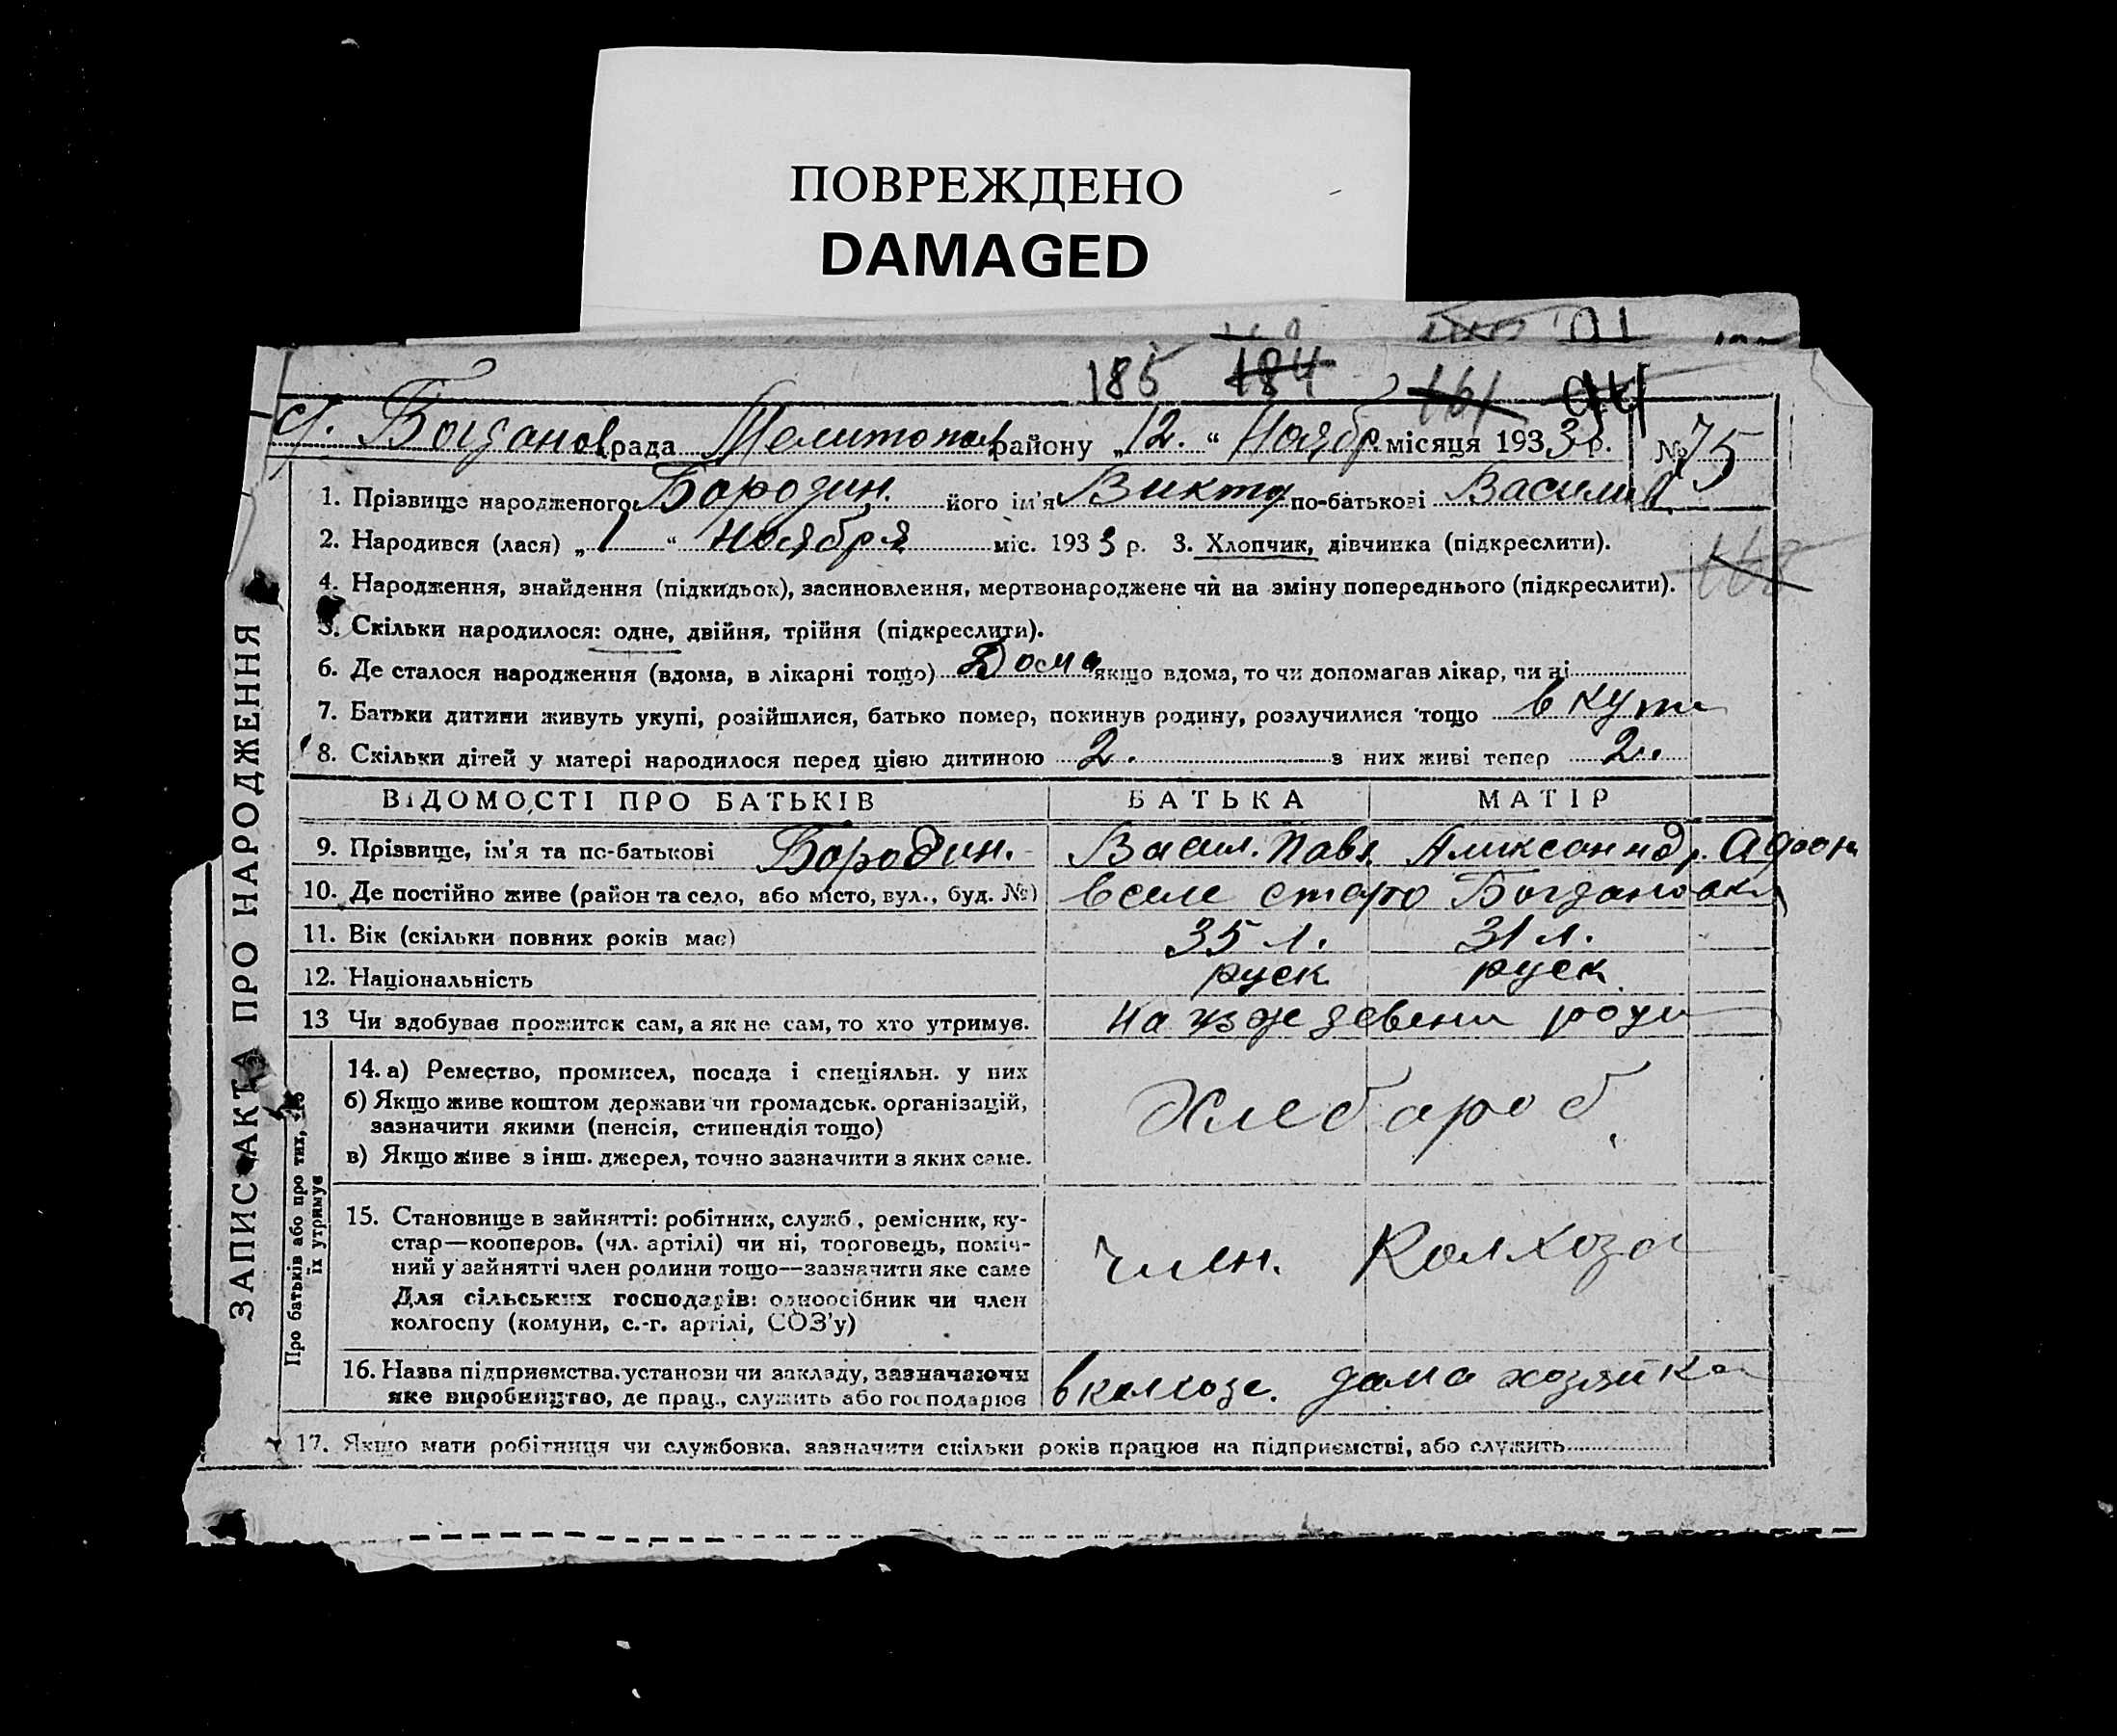 ПОВРЕЖДЕНО
DAMAGED
185 184 161
с. Богданов рада Мелитопол району „12.“ Ноябр. місяця 1933 р. № 75
1. Прізвище народженого Бородин. його ім'я Викто по-батькові Василив
2. Народився (лася) „1“ Ноября міс. 1933 р. 3. Хлопчик, дівчинка (підкреслити).
4. Народження, знайдення (підкидьок), засиновлення, мертвонароджене чи на зміну попереднього (підкреслити).
5. Скільки народилося: одне, двійня, трійня (підкреслити).
6. Де сталося народження (вдома, в лікарні тощо) Дома якщо вдома, то чи допомагав лікар, чи ні
7. Батьки дитини живуть укупі, розійшлися, батько помер, покинув родину, розлучилися тощо вкупи
8. Скільки дітей у матері народилося перед цією дитиною 2. з них живі тепер 2.
ВІДОМОСТІ ПРО БАТЬКІВ БАТЬКА МАТІР
9. Прізвище, ім'я та по-батькові Бородин. Васил. Павл Аликсаннд.
10. Де постійно живе (район та село, або місто, вул., буд. №) в селе старо Богдановка
11. Вік (скільки повних років має) 35 л. 31 л.
12. Національність руск руск
13 Чи здобуває прожиток сам, а як не сам, то хто утримує. На роди
14. а) Ремество, промисел, посада і спеціяльн. у них
б) Якщо живе коштом держави чи громадськ. організацій,
зазначити якими (пенсія, стипендія тощо)
в) Якщо живе з інш. джерел, точно зазначити з яких саме.
Хлебароб
15. Становище в зайнятті: робітник, служб., ремісник, ку-
стар—кооперов. (чл. артілі) чи ні, торговець, поміч-
ний у зайнятті член родини тощо—зазначити яке саме
Для сільських господарів: одноосібник чи член
колгоспу (комуни, с.-г. артілі, СОЗ'у)
член. Колхоза
16. Назва підприємства, установи чи закладу, зазначаючи
яке виробництво, де прац., служить або господарює
в колхозе. дама хозяйка
17. Якщо мати робітниця чи службовка, зазначити скільки років працює на підприємстві, або служить
ЗАПИС АКТА ПРО НАРОДЖЕННЯ
Про батьків або про тих, що
їх утримує